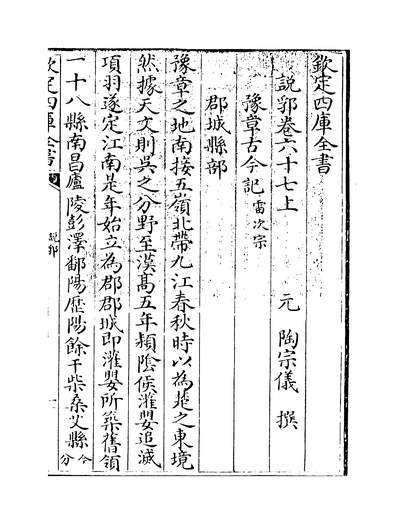 欽定四庫全書
說郛卷六十七上
元 陶宗儀 撰
豫章古今記 雷次宗
郡城縣部
豫章之地南接五嶺北帶九江春秋時以為楚之東境
然據天文則吳之分野至漢髙五年頼隂侯灌嬰追滅
項羽遂定江南是年始立為郡郡城即灌嬰所築舊領
一十八縣南昌廬陵彭澤鄱陽歴陽餘干柴桑艾縣今分
欽定四庫全書
說郛
一